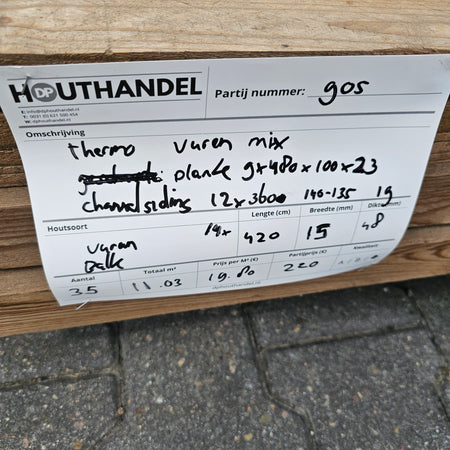 HOUTHANDEL
DP
E: info@dphouthandel.nl
T: 0031 (0) 621 590 454
W: dphouthandel.nl
Partij nummer: 905
Omschrijving
thermo vuren mix
planke 9x480x100x23
channelsiding 12x3600 146-135 19
Houtsoort Lengte (cm) Breedte (mm) Dikte (mm)
vuren 14x 420 15 48
Balk
Aantal Totaal m² Prijs per M² (€) Partijprijs (€) Kwaliteit
35 11.03 19.80 220
dphouthandel.nl